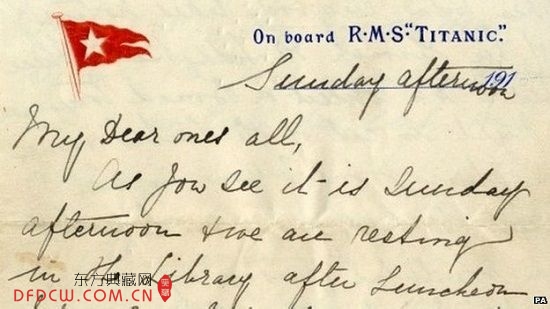 On board R·M·S "TITANIC."
191
Sunday afternoon
My Dear ones all,
As you see it is Sunday
afternoon & we are resting
in the Library after Luncheon
东方典藏网
DFDCW.COM.CN
PA